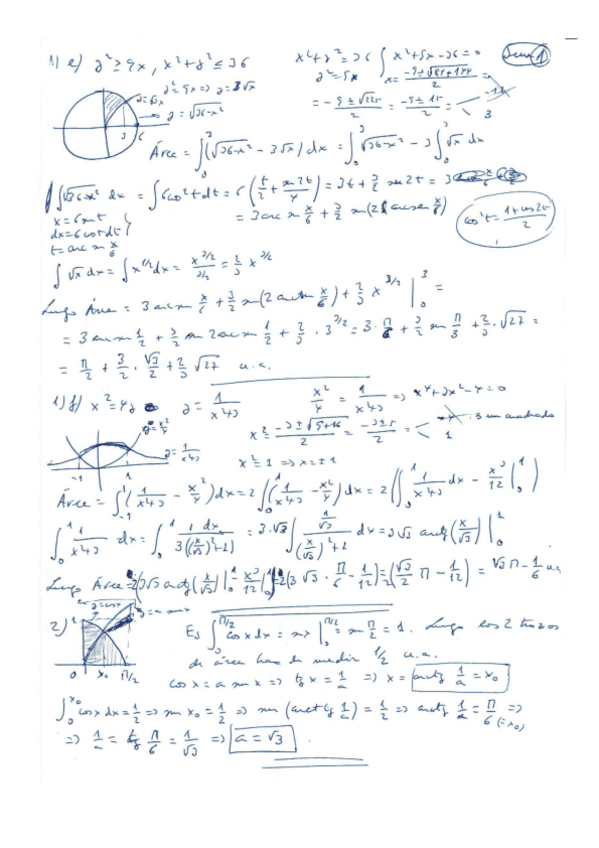 1) e) y² ≥ 9x , x²+y² ≤ 36
x²+y²=36
y²=9x
x²+9x-36=0
x= (-9±√(81+144))/2 =
= (-9±√225)/2 = (-9±15)/2 = < -12
3
y²=9x => y=3√x
y=√(36-x²)
3 6
Área = ∫₀³(√(36-x²) - 3√x) dx = ∫₀³√(36-x²) - 3∫₀³√x dx
∫√(36-x²) dx = ∫6cos²t dt = 6(t/2 + sen 2t/4) = 3t + 3/2 sen 2t =
x=6 sen t
dx=6cos t dt
t=arc sen x/6
= 3 arc sen x/6 + 3/2 sen(2 arcsen x/6)
cos²t = (1+cos 2t)/2
∫√x dx = ∫x^(1/2) dx = x^(3/2)/(3/2) = 2/3 x^(3/2)
Luego Área = 3 arcsen x/6 + 3/2 sen(2 arcsen x/6) + 2/3 x^(3/2) |₀³ =
= 3 arcsen 1/2 + 3/2 sen 2 arcsen 1/2 + 2/3 · 3^(3/2) = 3 · π/6 + 3/2 sen π/3 + 2/3 · √27 =
= π/2 + 3/2 · √3/2 + 2/3 √27 u.a.
1) f) x²=4y y = 1/(x²+3) x²/4 = 1/(x²+3) => x⁴+3x²-4=0
y=x²/4
y=1/(x²+3)
-1 1
x² = (-3±√(9+16))/2 = (-3±5)/2 = < -4
1
x²=1 => x=±1
Área = ∫₋₁¹(1/(x²+3) - x²/4) dx = 2∫₀¹(1/(x²+3) - x²/4) dx = 2(∫₀¹ 1/(x²+3) dx - x³/12 |₀¹)
∫₀¹ 1/(x²+3) dx = ∫₀¹ 1 dx/(3((x/√3)²+1)) = 3·√3 ∫ (1/√3)/((x/√3)²+1) dx = 3√3 arctg(x/√3) |₀¹
Luego Área = 2(3√3 arctg(x/√3)|₀¹ - x³/12|₀¹) = 2(3√3 · π/6 - 1/12) = 2(√3/2 π - 1/12) = √3 π - 1/6 u.a.
2)
y=cos x
y=a sen x
0 x₀ π/2
Es ∫₀^(π/2) cos x dx = sen x |₀^(π/2) = sen π/2 = 1. Luego los 2 trozos
de área han de medir 1/2 u.a.
cos x = a sen x => tg x = 1/a => x = arctg 1/a = x₀
∫₀^(x₀) cos x dx = 1/2 => sen x₀ = 1/2 => sen (arctg 1/a) = 1/2 => arctg 1/a = π/6 (=x₀) =>
=> 1/a = tg π/6 = 1/√3 => a = √3